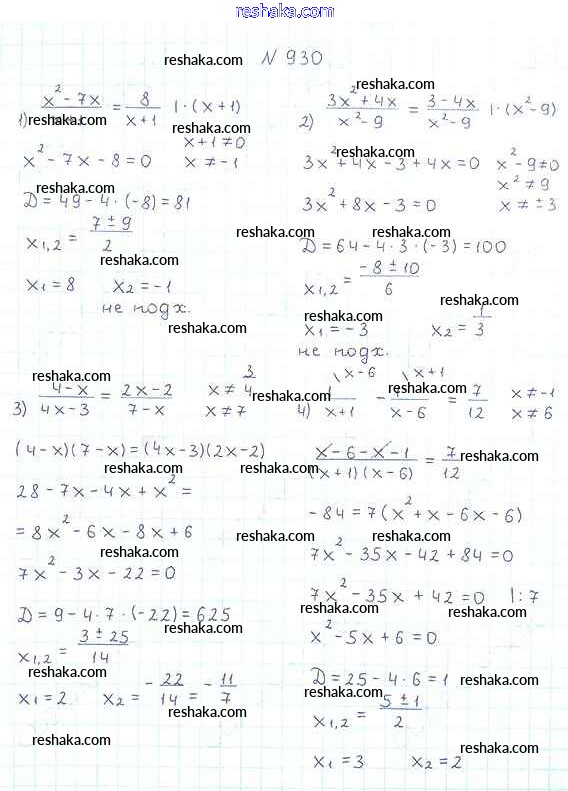 reshaka.com
reshaka.com № 930
1) (x² - 7x)/(x+1) = 8/(x+1) | · (x+1)
reshaka.com
reshaka.com
x+1 ≠ 0
x² - 7x - 8 = 0 x ≠ -1
reshaka.com
D = 49 - 4 · (-8) = 81
x₁,₂ = (7 ± 9)/2
reshaka.com
x₁ = 8 x₂ = -1
не подх.
reshaka.com
reshaka.com
2) (3x² + 4x)/(x² - 9) = (3 - 4x)/(x² - 9) | · (x² - 9)
reshaka.com
3x² + 4x - 3 + 4x = 0 x² - 9 ≠ 0
reshaka.com
x² ≠ 9
3x² + 8x - 3 = 0 x ≠ ± 3
reshaka.com
reshaka.com
D = 64 - 4 · 3 · (-3) = 100
x₁,₂ = (-8 ± 10)/6
reshaka.com
reshaka.com
x₁ = -3 x₂ = 1/3
не подх.
reshaka.com
reshaka.com
3) (4-x)/(4x-3) = (2x-2)/(7-x) x ≠ 3/4
x ≠ 7
reshaka.com
(4-x)(7-x) = (4x-3)(2x-2)
reshaka.com reshaka.com
28 - 7x - 4x + x² =
reshaka.com
= 8x² - 6x - 8x + 6
reshaka.com
7x² - 3x - 22 = 0
reshaka.com
D = 9 - 4 · 7 · (-22) = 625
reshaka.com
x₁,₂ = (3 ± 25)/14
reshaka.com
x₁ = 2 x₂ = -22/14 = -11/7
reshaka.com
reshaka.com
4) 1/(x+1) \x-6 - 1/(x-6) \x+1 = 7/12 x ≠ -1
x ≠ 6
reshaka.com
(x-6-x-1)/((x+1)(x-6)) = 7/12
reshaka.com
-84 = 7(x² + x - 6x - 6)
reshaka.com
7x² - 35x - 42 + 84 = 0
reshaka.com
7x² - 35x + 42 = 0 |: 7
reshaka.com
x² - 5x + 6 = 0
reshaka.com
D = 25 - 4 · 6 = 1
reshaka.com
reshaka.com
x₁,₂ = (5 ± 1)/2
reshaka.com
x₁ = 3 x₂ = 2